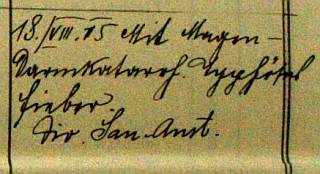 18./VIII. 15 Mit Magen-
Darmkatarrh. Typhöses
Fieber.
Div. San. Anst.